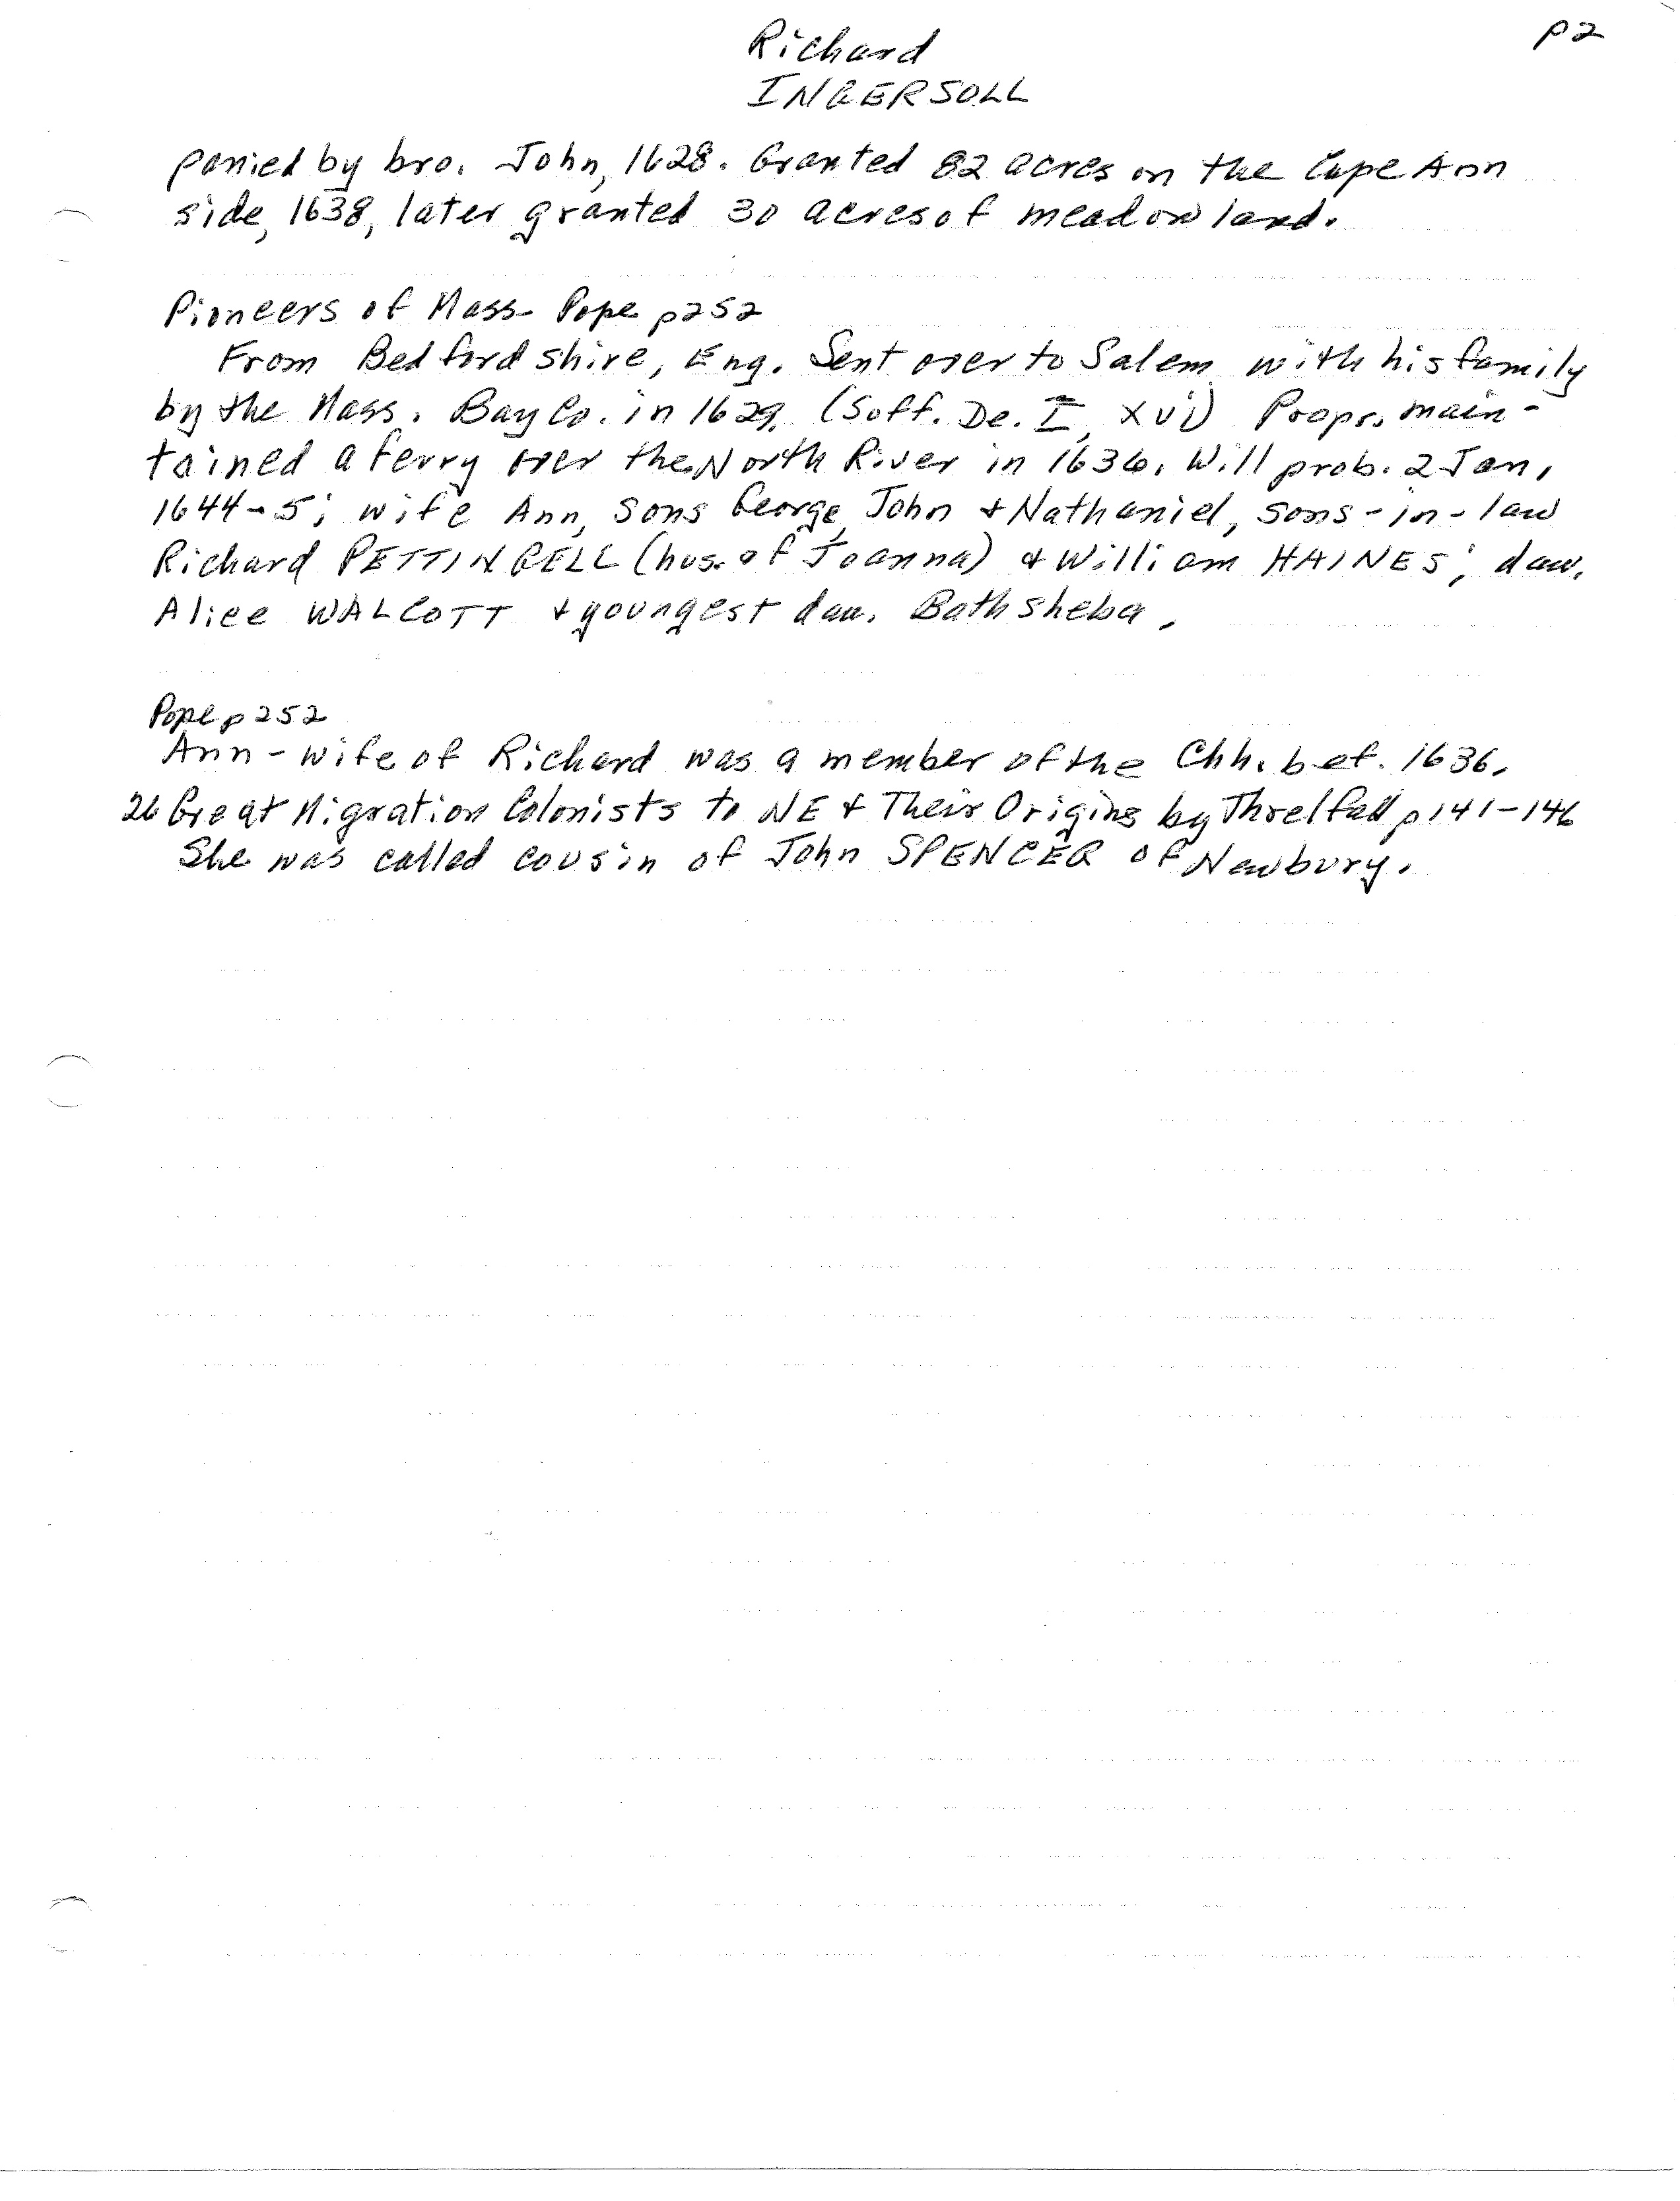 p2
Richard
INGERSOLL
panied by bro. John, 1628. Granted 82 acres on the Cape Ann
side, 1638, later granted 30 acres of meadow land.
Pioneers of Mass- Pope p252
From Bedfordshire, Eng. Sent over to Salem with his family
by the Mass. Bay Co. in 1629. (Suff. De. I, xvi) Propr. main-
tained a ferry over the North River in 1636. Will prob. 2 Jan,
1644-5; wife Ann, sons George, John + Nathaniel, sons-in-law
Richard PETTINGELL (hus. of Joanna) + William HAINES; dau.
Alice WALCOTT + youngest dau. Bathsheba.
Pope p252
Ann - wife of Richard was a member of the Chh. bef. 1636.
26 Great Migration Colonists to NE + Their Origins by Threlfall p141-146
She was called cousin of John SPENCER of Newbury.